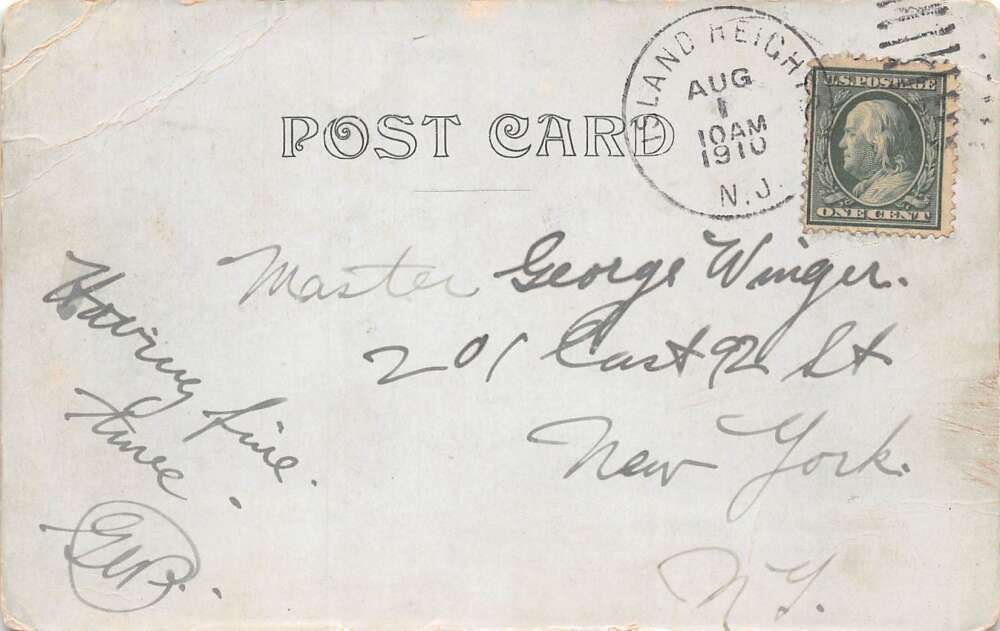 POST CARD
ISLAND HEIGHTS
AUG
1
10 AM
1910
N.J.
U.S. POSTAGE
ONE CENT
Master George Winger.
201 East 92 St
New York.
N.Y.
Having fine
time.